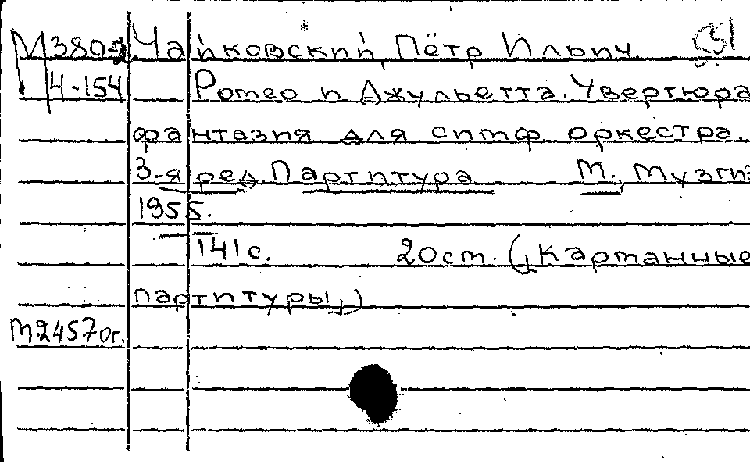 М380 Чайковский, Пётр Ильич.
Ч-154 Ромео и Джульетта. Увертюра
фантазия для симф. оркестра.
3-я ред. Партитура М., Музгиз
1955.
141 с. 20 cm. („Карманные
партитуры")
m2457or.